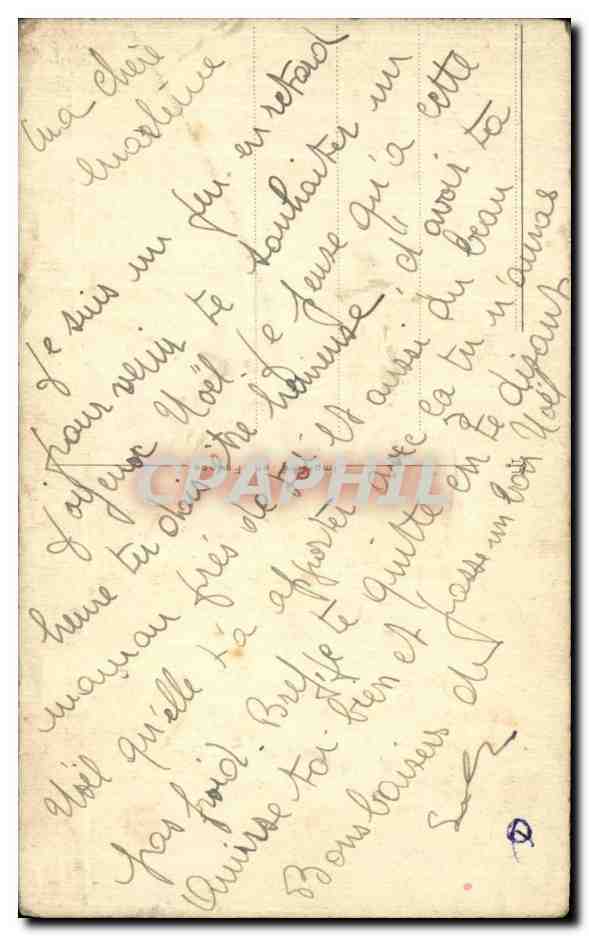 Ma chère
Marlène
Je suis un peu en retard
pour venir te souhaiter un
joyeux Noël. Je pense qu'à cette
heure tu dois être heureuse, d'avoir ta
maman près de toi et aussi du beau
Noël qu'elle t'a apporter avec ça tu n'auras
pas froid. Bref je te quitte en te disant
Amusse toi bien et passe un bon Noël
Bons baisers de
CPAPHIL